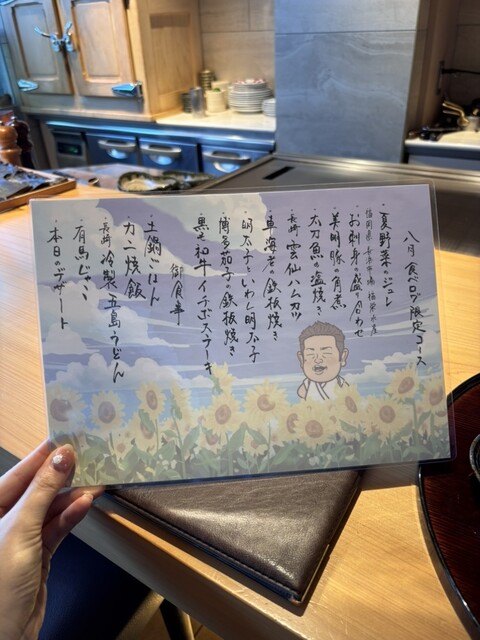 八月 食べログ限定コース
・夏野菜のジュレ
福岡県
・お刺身の盛り合わせ
・美明豚の角煮
・太刀魚の塩焼き
・長崎 雲仙ハムカツ
・車海老の鉄板焼き
・明太子といわし明太子
・博多茄子の鉄板焼き
・黒毛和牛イチボステーキ
御食事
・土鍋ごはん
・カニ焼飯
・長崎 冷製五島うどん
・有馬じゃこ
・本日のデザート